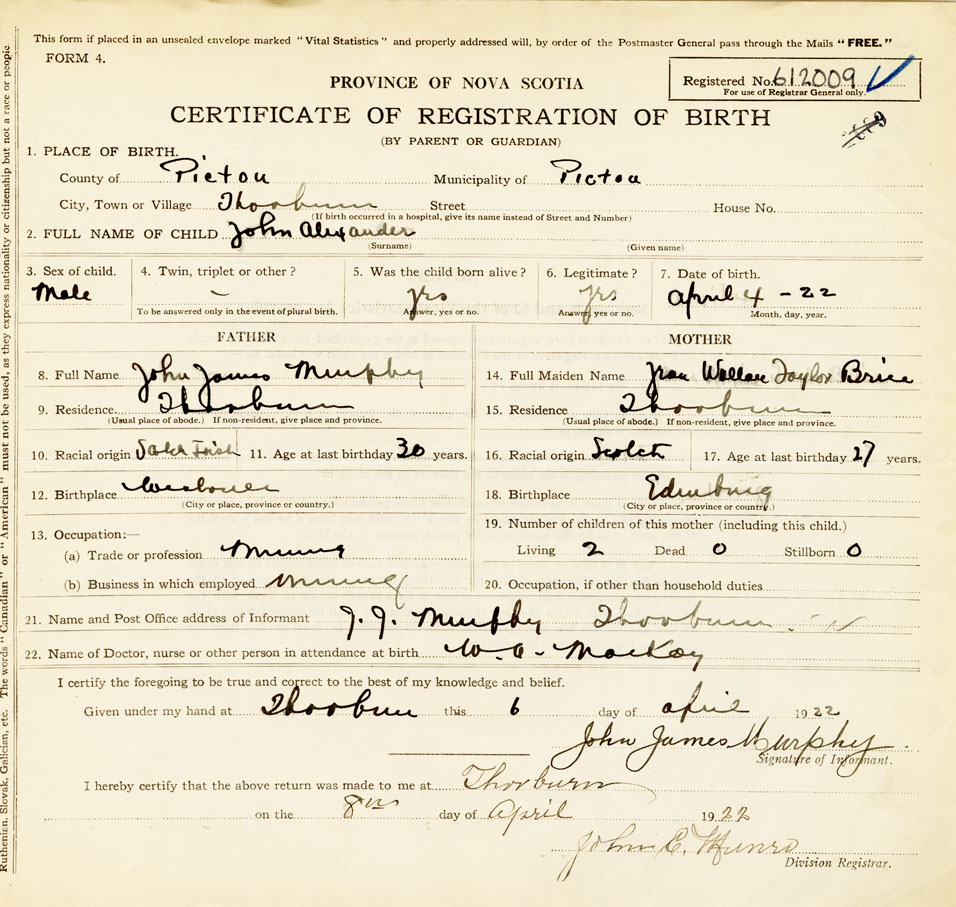 This form if placed in an unsealed envelope marked "Vital Statistics" and properly addressed will, by order of the Postmaster General pass through the Mails "FREE."
FORM 4.
Registered No. 612009
For use of Registrar General only.
PROVINCE OF NOVA SCOTIA
CERTIFICATE OF REGISTRATION OF BIRTH
(BY PARENT OR GUARDIAN)
1. PLACE OF BIRTH.
County of Pictou Municipality of Pictou
City, Town or Village Thorburn Street House No.
(If birth occurred in a hospital, give its name instead of Street and Number)
2. FULL NAME OF CHILD John Alexander
(Surname) (Given name)
3. Sex of child. 4. Twin, triplet or other? 5. Was the child born alive? 6. Legitimate? 7. Date of birth.
Male – yrs yrs April 4 - 22
To be answered only in the event of plural birth. Answer, yes or no. Answer, yes or no. Month, day, year.
FATHER
8. Full Name John James Murphy
9. Residence. Thorburn
(Usual place of abode.) If non-resident, give place and province.
10. Racial origin Irish 11. Age at last birthday 30 years.
12. Birthplace
(City or place, province or country.)
13. Occupation:—
(a) Trade or profession Mining
(b) Business in which employed Mining
MOTHER
14. Full Maiden Name Jean Taylor
15. Residence Thorburn
(Usual place of abode.) If non-resident, give place and province.
16. Racial origin Scotch 17. Age at last birthday 27 years.
18. Birthplace
(City or place, province or country.)
19. Number of children of this mother (including this child.)
Living 2 Dead 0 Stillborn 0
20. Occupation, if other than household duties
21. Name and Post Office address of Informant J. J. Murphy Thorburn
22. Name of Doctor, nurse or other person in attendance at birth W. A. MacKay
I certify the foregoing to be true and correct to the best of my knowledge and belief.
Given under my hand at Thorburn this 6 day of april 1922
John James Murphy
Signature of Informant.
I hereby certify that the above return was made to me at Thorburn
on the 8th day of April 1922
John C. Munro
Division Registrar.
Ruthenian, Slovak, Galician, etc. The words "Canadian" or "American" must not be used, as they express nationality or citizenship but not a race or people